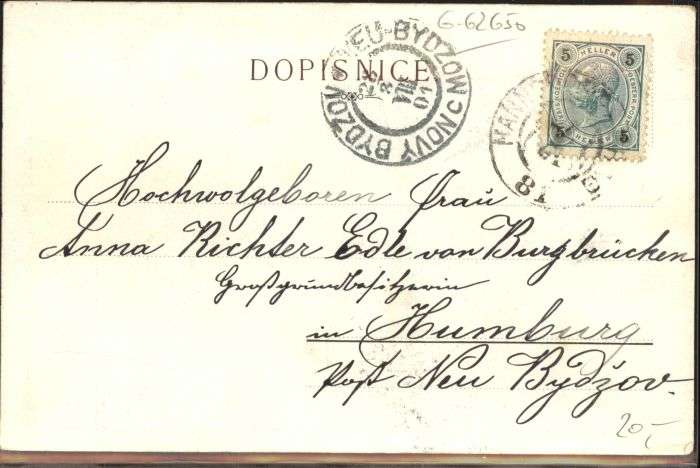 G-62650
DOPISNICE
NEU-BYDZOW
NOVY BYDZOV
C
VIII
01
5 HELLER 5
5 5
81
Hochwolgeboren Frau
Anna Richter Edle von Burgbrücken
Großgrundbesitzerin
in Humburg
Post Neu Bydžov.
20,-